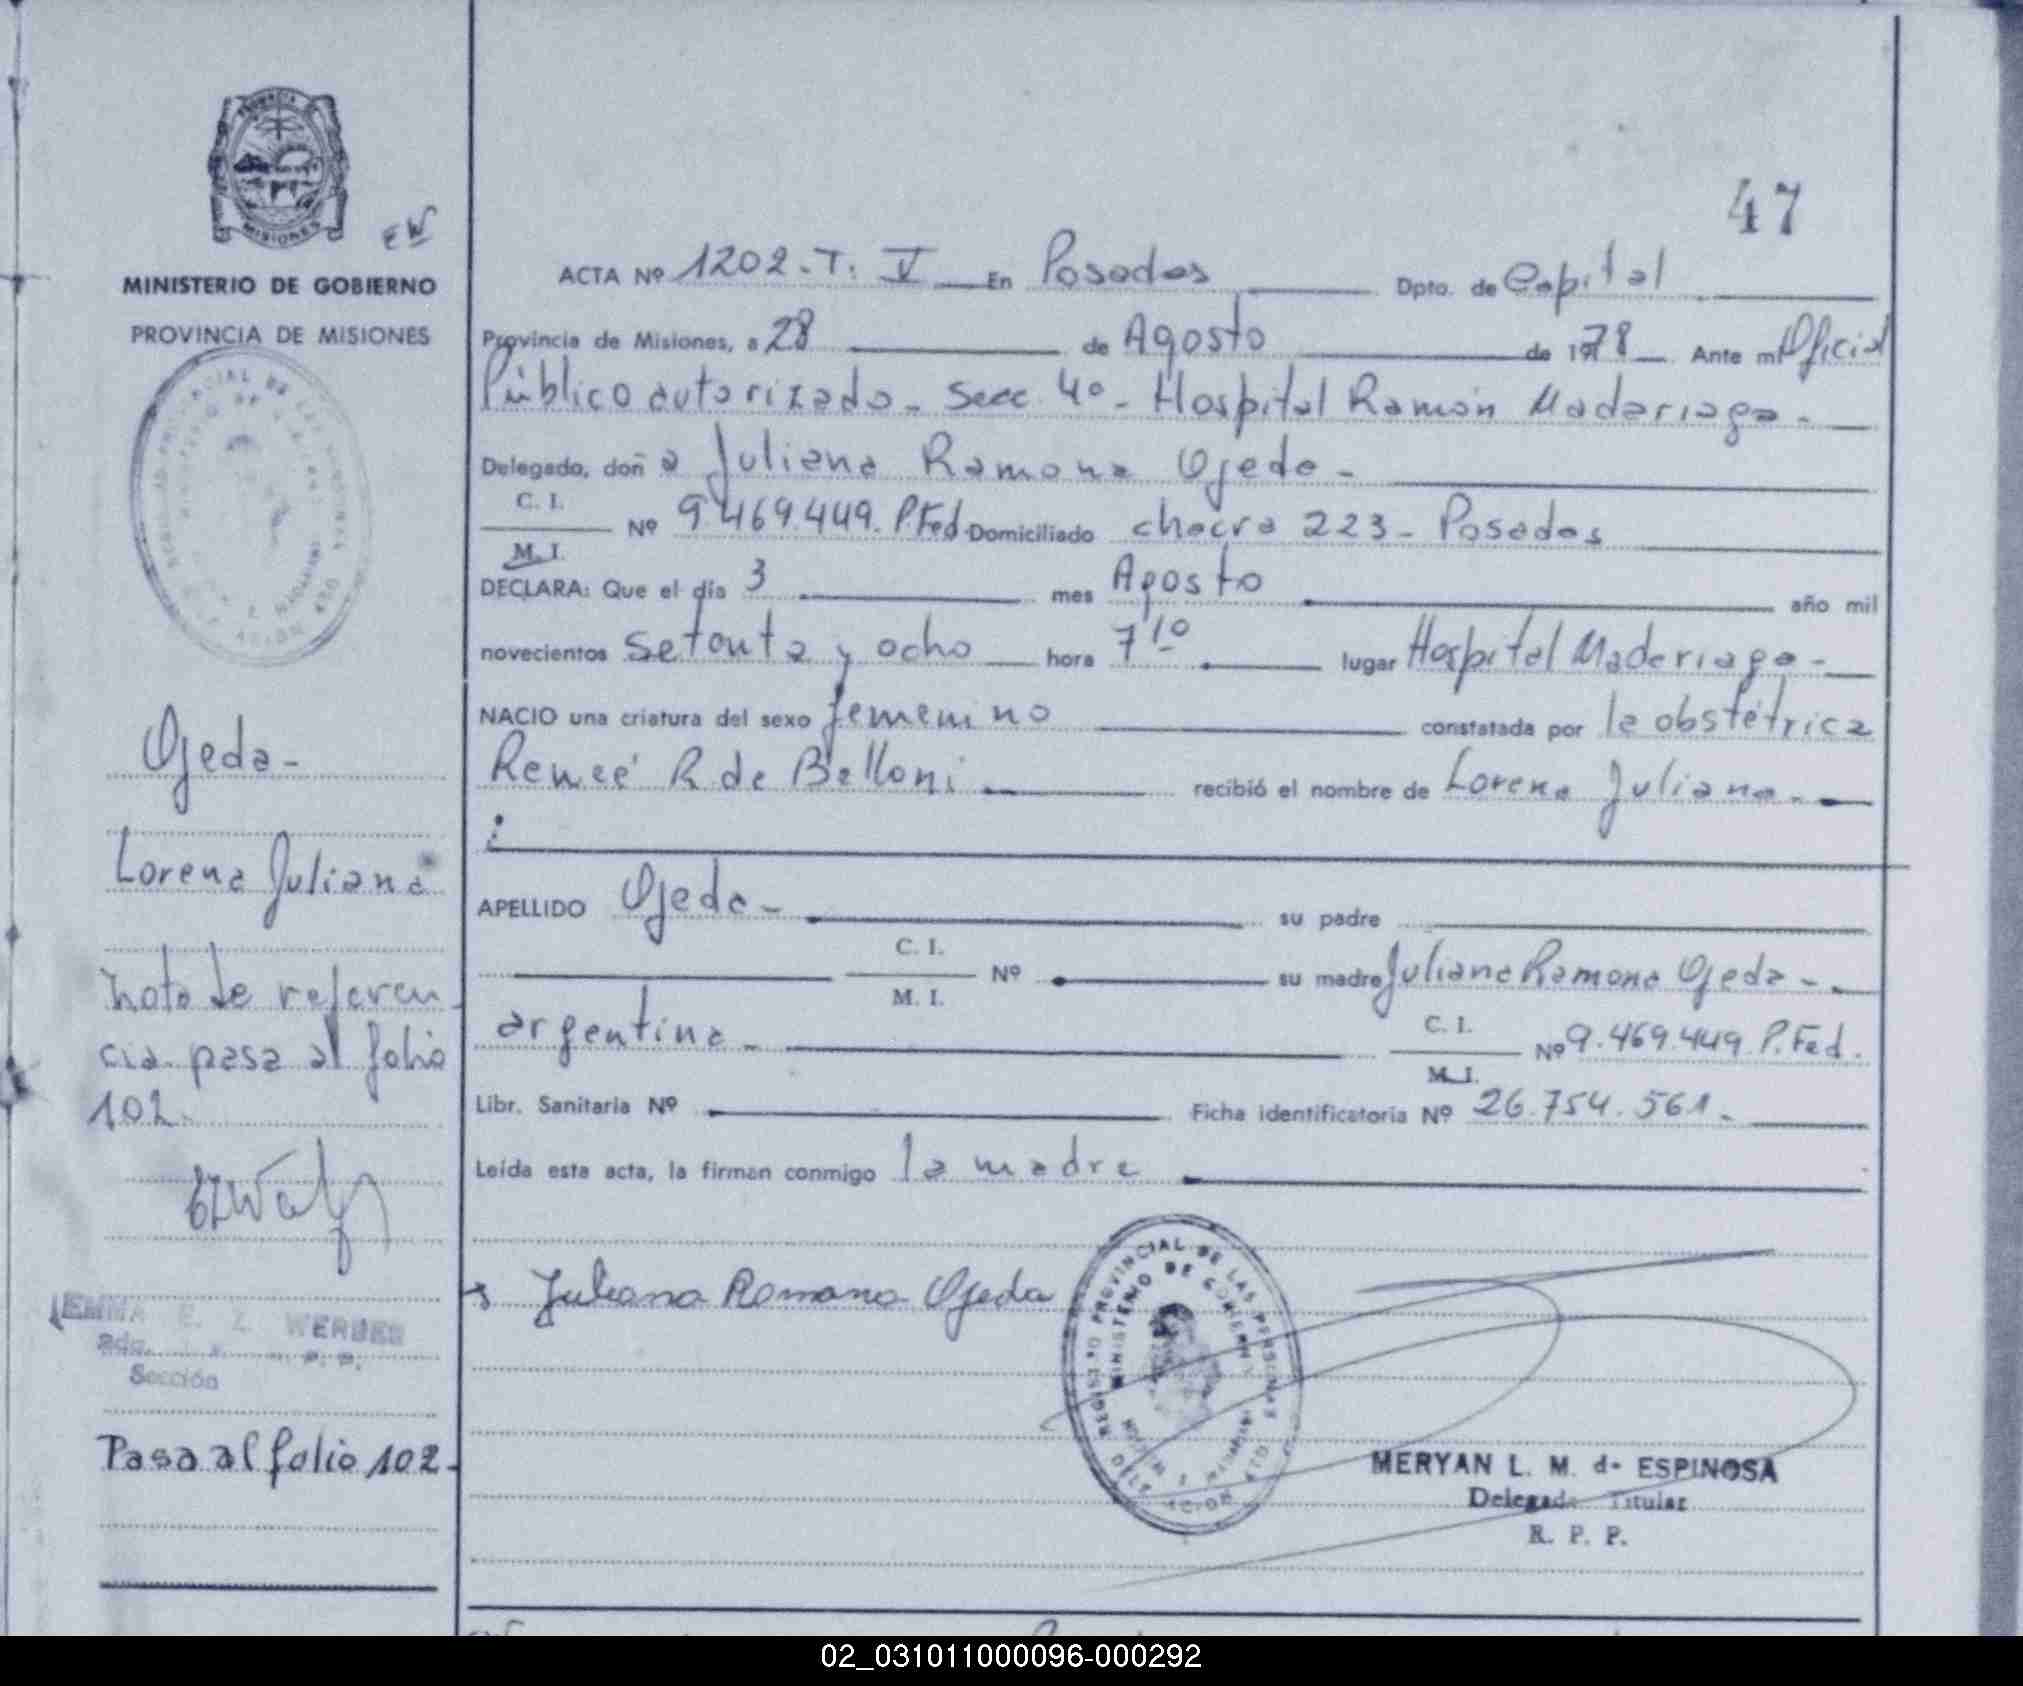 47
PROVINCIA DE
MISIONES
EW
MINISTERIO DE GOBIERNO
PROVINCIA DE MISIONES
Ojeda-
Lorena Juliana
Nota de referen-
cia pasa al folio
102.
EMMA E. Z. WERBES
Sección
Pasa al folio 102-
ACTA Nº 1202.T. V En Posadas Dpto. de Capital
Provincia de Misiones, a 28 de Agosto de 1978 Ante mi Oficial
Público autorizado - Secc 4º - Hospital Ramón Madariaga -
Delegado, doña Juliana Ramona Ojeda -
C. I.
M. I. Nº 9.469.449. P.Fed. Domiciliado chacra 223 - Posadas
DECLARA: Que el día 3 mes Agosto año mil
novecientos setenta y ocho hora 7 10 lugar Hospital Madariaga -
NACIO una criatura del sexo femenino constatada por la obstétrica
Reneé R de Belloni recibió el nombre de Lorena Juliana. -
APELLIDO Ojeda - su padre
C. I.
M. I. Nº su madre Juliana Ramona Ojeda -
argentina - C. I.
M. I. Nº 9.469.449 P.Fed.
Libr. Sanitaria Nº Ficha identificatoria Nº 26.754.561.
Leída esta acta, la firman conmigo la madre
Juliana Ramona Ojeda
REGISTRO PROVINCIAL DE LAS PERSONAS
MINISTERIO DE GOBIERNO
DELEGACION
MERYAN L. M. de ESPINOSA
Delegada Titular
R. P. P.
02_031011000096-000292